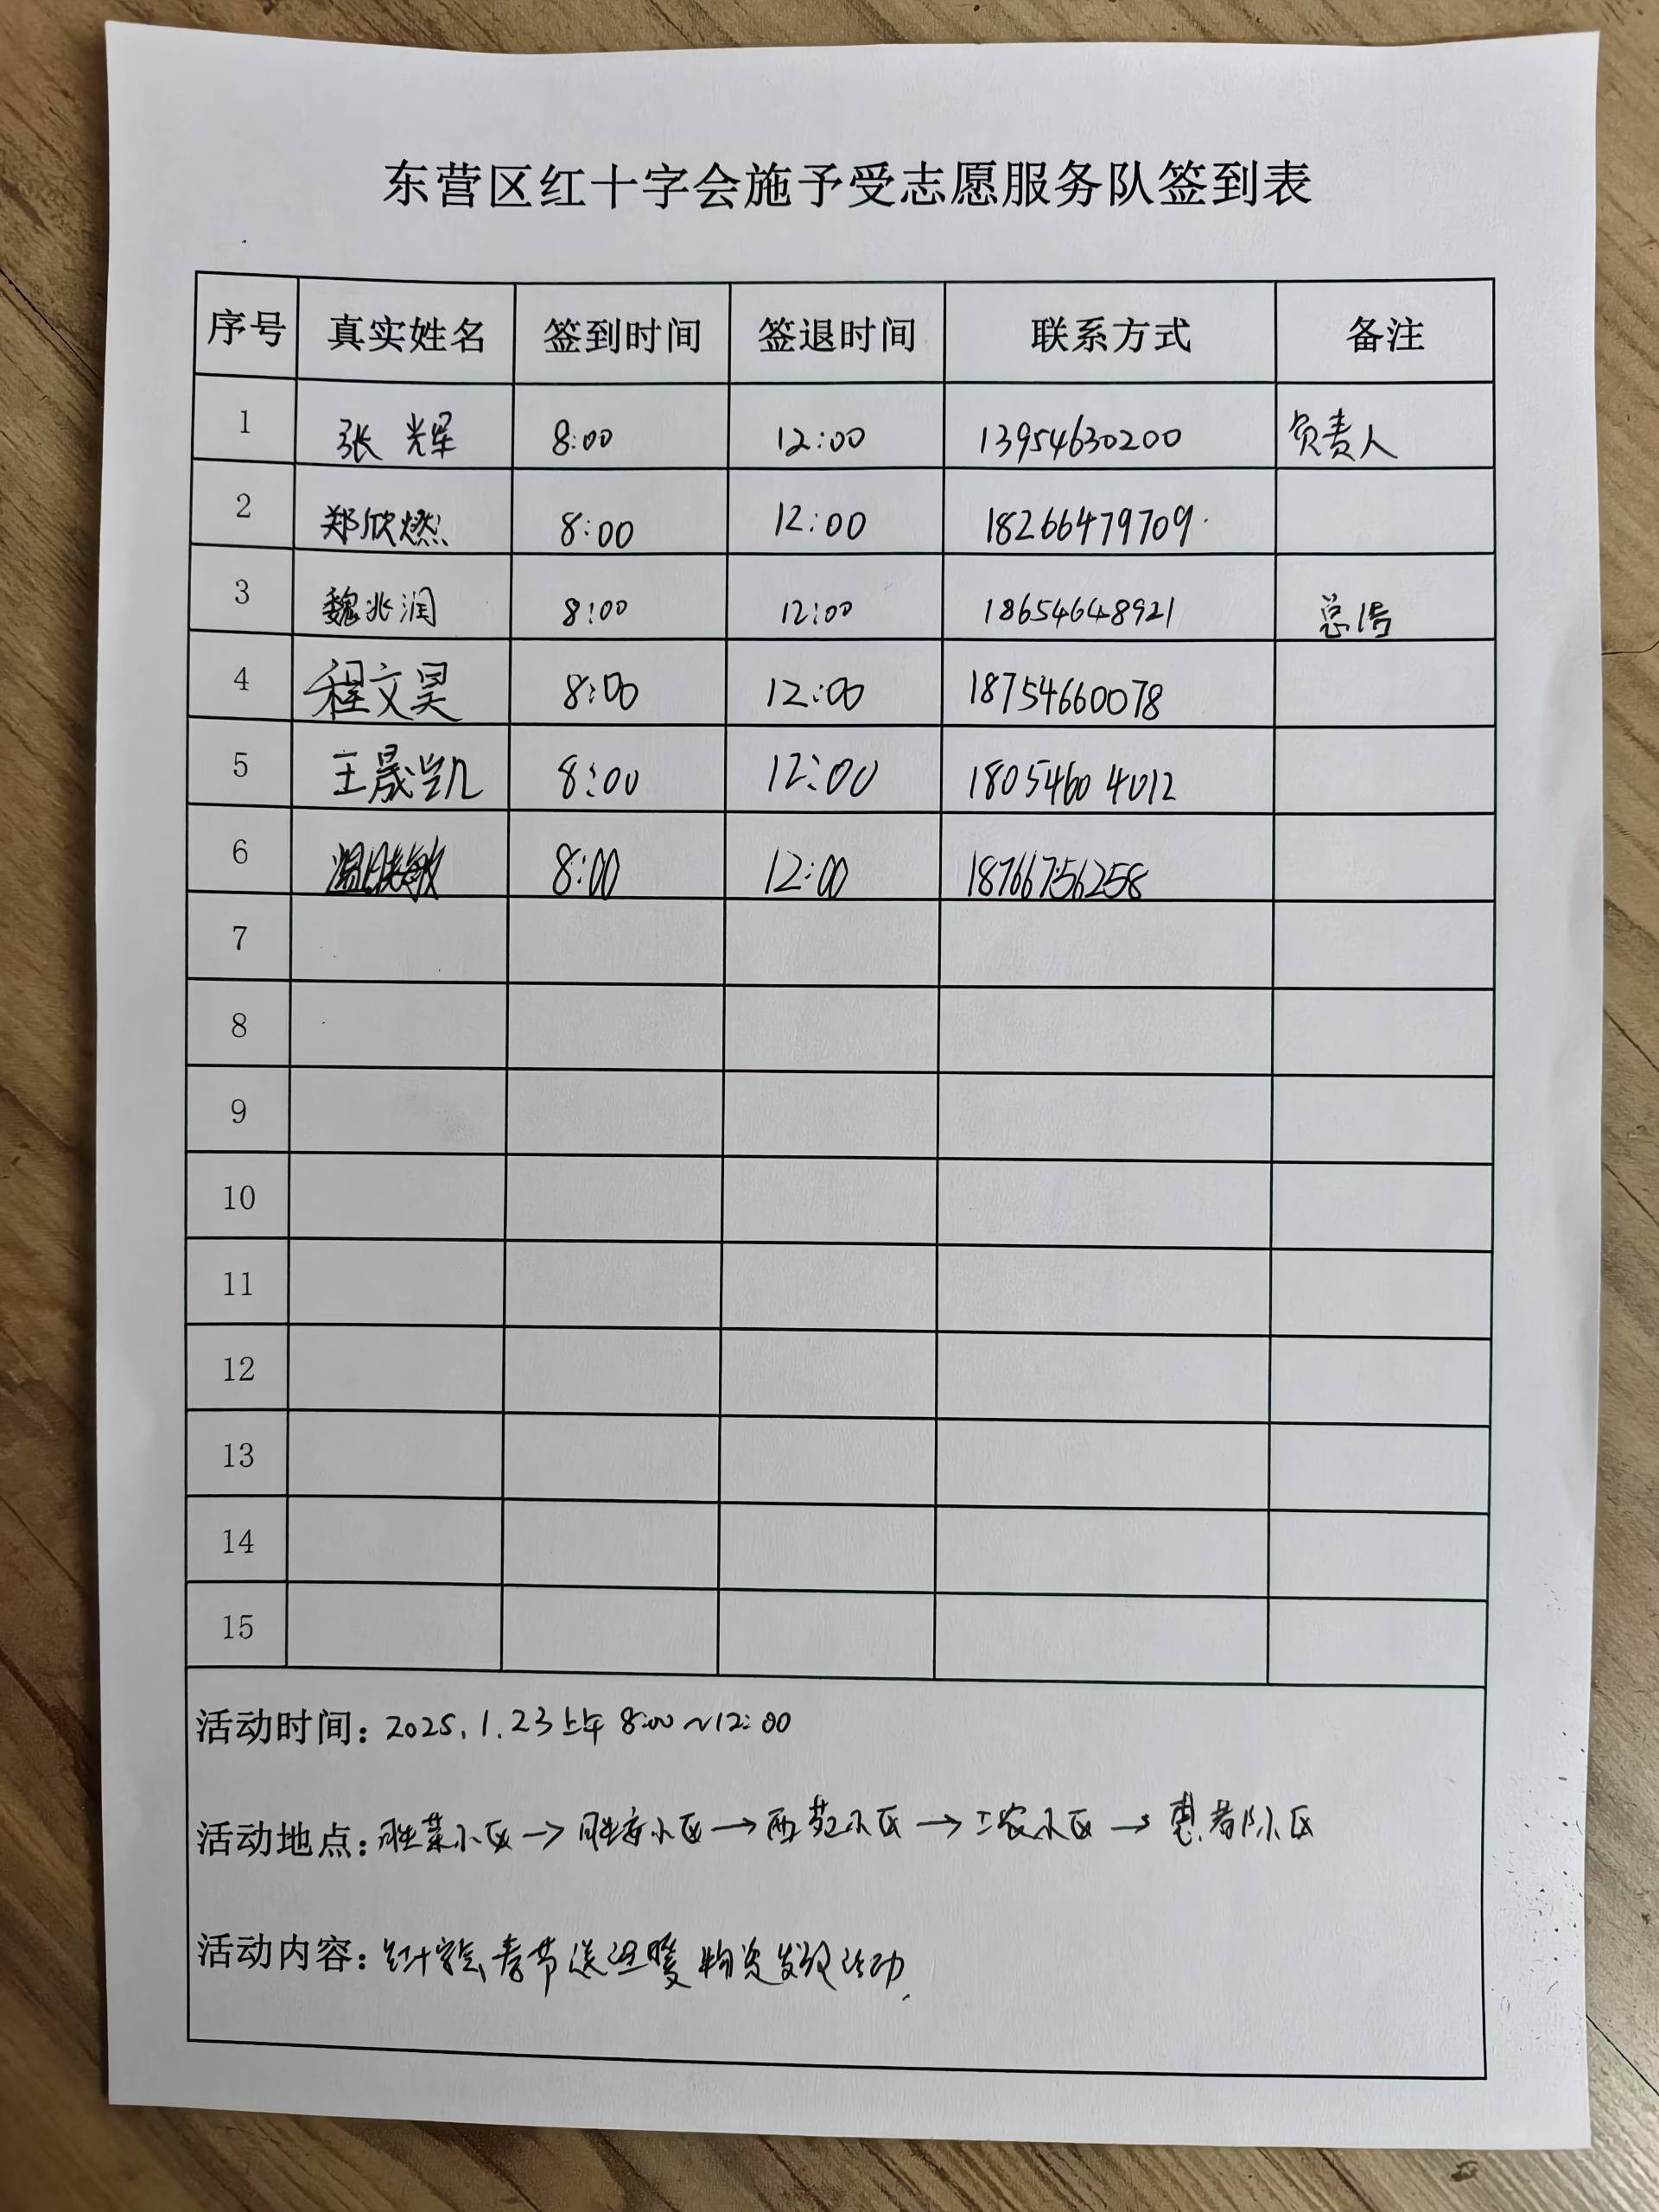 东营区红十字会施予受志愿服务队签到表
序号 真实姓名 签到时间 签退时间 联系方式 备注
1 张辉 8:00 12:00 13954630200 负责人
2 郑欣燃 8:00 12:00 18266479709
3 魏兆润 8:00 12:00 18654648921
4 程文昊 8:00 12:00 18754660078
5 王晟凯 8:00 12:00 18054604012
6 8:00 12:00 18766756258
7
8
9
10
11
12
13
14
15
活动时间：2025.1.23上午 8:00~12:00
活动地点：胜菜小区→胜安小区→西苑小区→工农小区→惠都小区
活动内容：红十字会春节送温暖物资发放活动